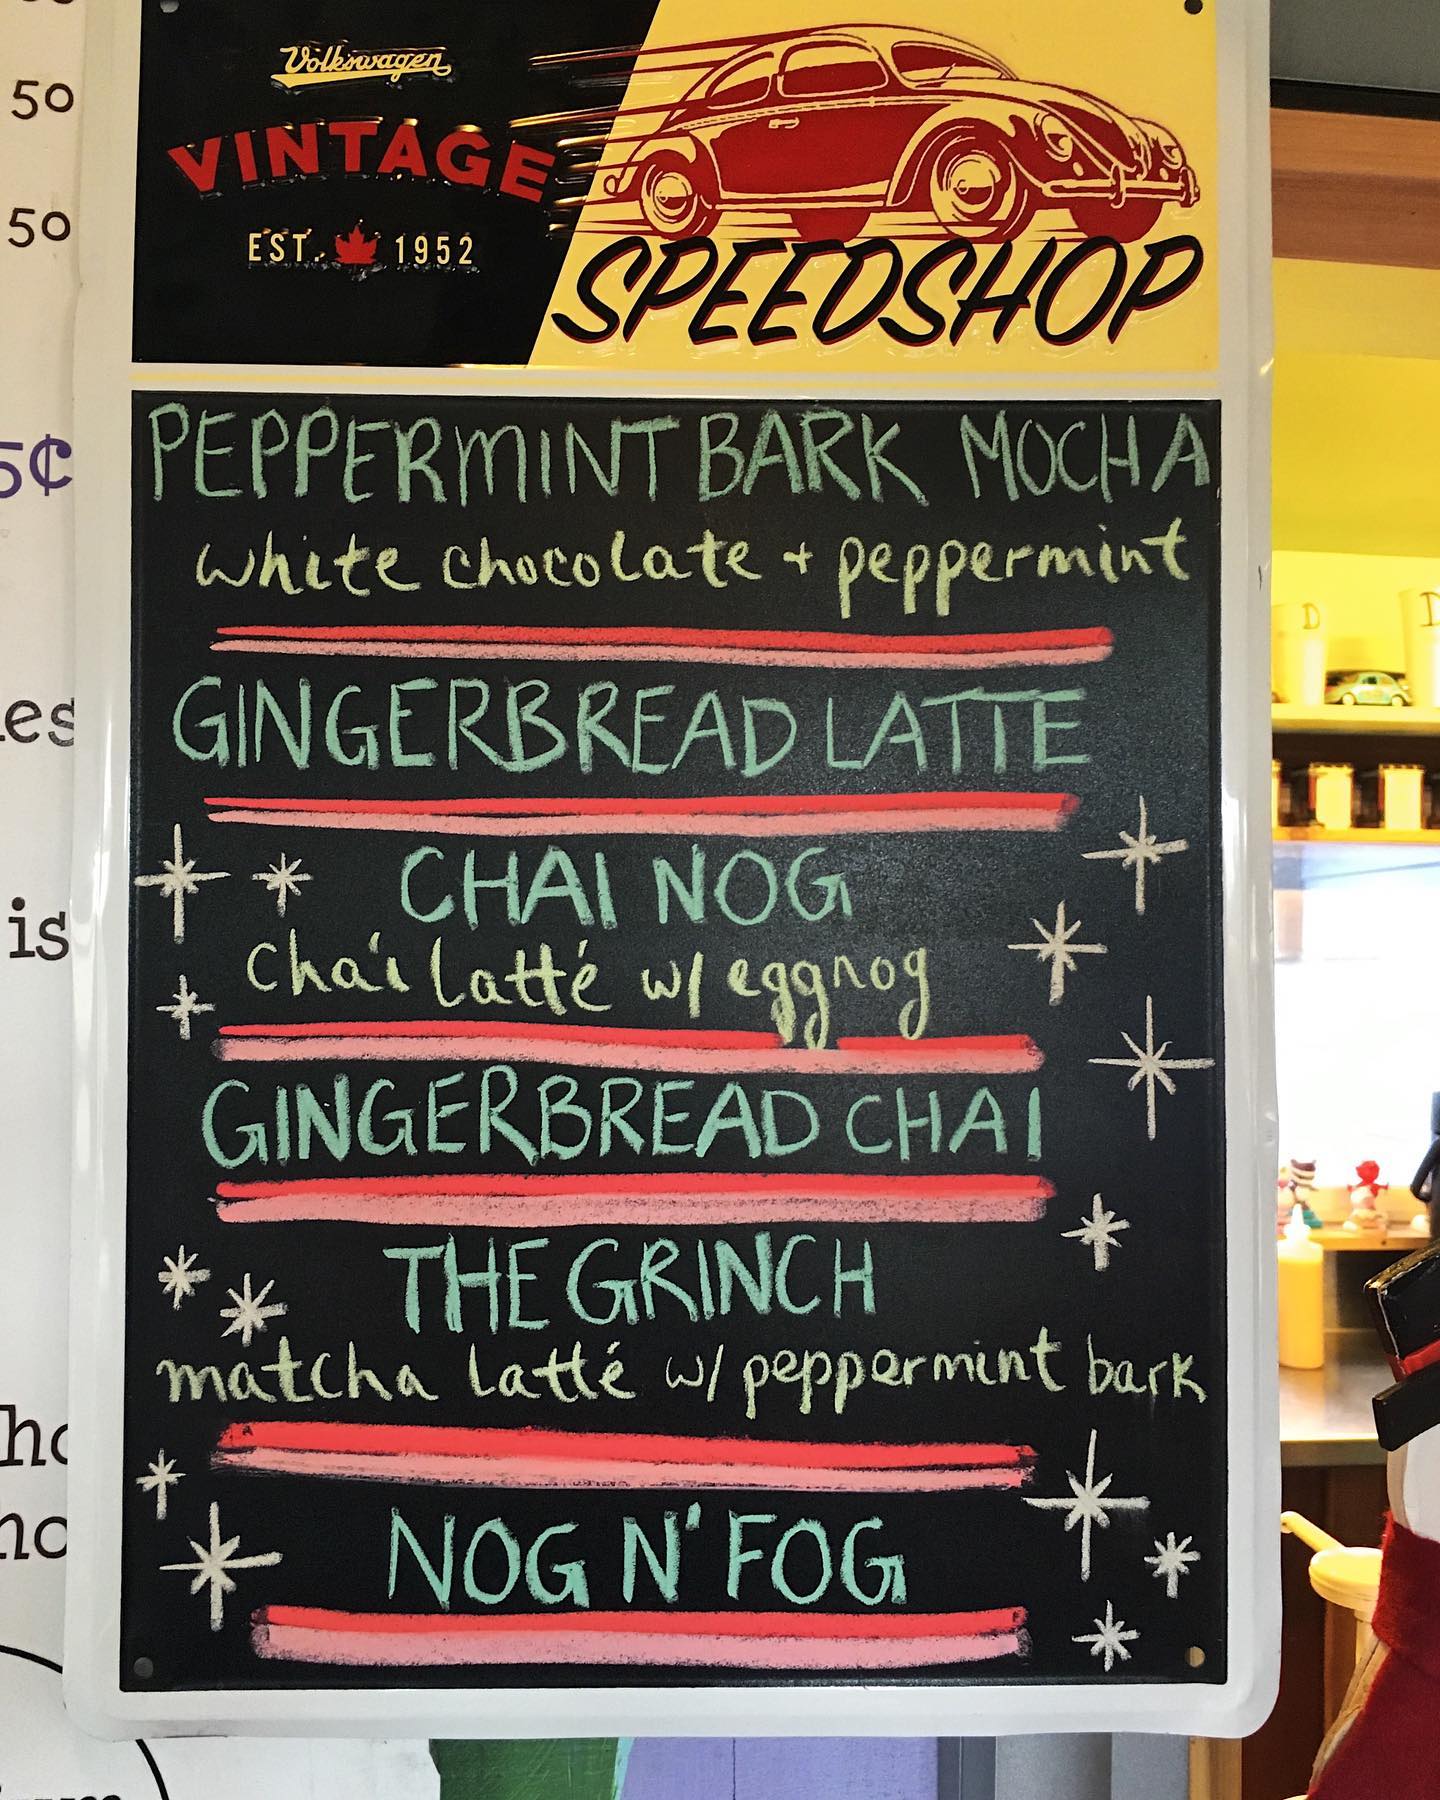 Volkswagen
VINTAGE
EST. 1952
SPEEDSHOP
PEPPERMINT BARK MOCHA
white chocolate + peppermint
GINGERBREAD LATTE
CHAI NOG
chai latté w/ eggnog
GINGERBREAD CHAI
THE GRINCH
matcha latté w/ peppermint bark
NOG N' FOG
50
50
5¢
is